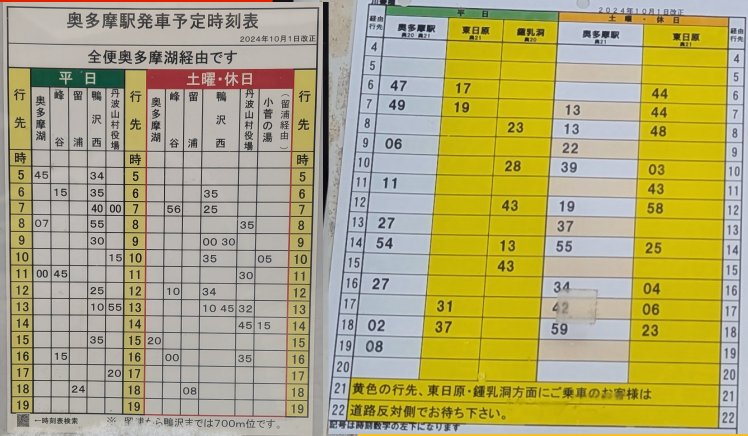 奥多摩駅発車予定時刻表
2024年10月1日改正
全便奥多摩湖経由です
行先 平日 行先 土曜・休日
奥多摩湖 峰谷 留浦 鴨沢西 丹波山村役場 奥多摩湖 峰谷 留浦 鴨沢西 丹波山村役場 小菅の湯 (留浦経由)
時 時
5 45 34 5
6 15 35 6 35
7 40 00 7 56 25
8 07 55 8 35
9 30 9 00 30
10 15 10 35 05
11 00 45 11 30
12 25 12 10 34
13 10 55 13 10 45 32
14 14 45 15
15 35 15 20
16 15 16 00 35
17 20 17
18 24 18 08
19 19
←時刻表検索 ※ 留浦から鴨沢までは700m位です。
2024年10月1日改正
経由行先 平日 土曜・休日 経由行先
奥多摩駅 奥20 奥21 東日原 奥21 鍾乳洞 奥20 奥多摩駅 奥20 奥21 東日原 奥21
4 4
5 5
6 47 17 44 6
7 49 19 13 44 7
8 23 13 48 8
9 06 22 9
10 28 39 03 10
11 11 43 11
12 43 19 58 12
13 27 37 13
14 54 13 55 25 14
15 43 15
16 27 34 04 16
17 31 42 06 17
18 02 37 59 23 18
19 08 19
20 20
21 黄色の行先、東日原・鍾乳洞方面にご乗車のお客様は 21
22 道路反対側でお待ち下さい。 22
記号は時刻数字の左下になります